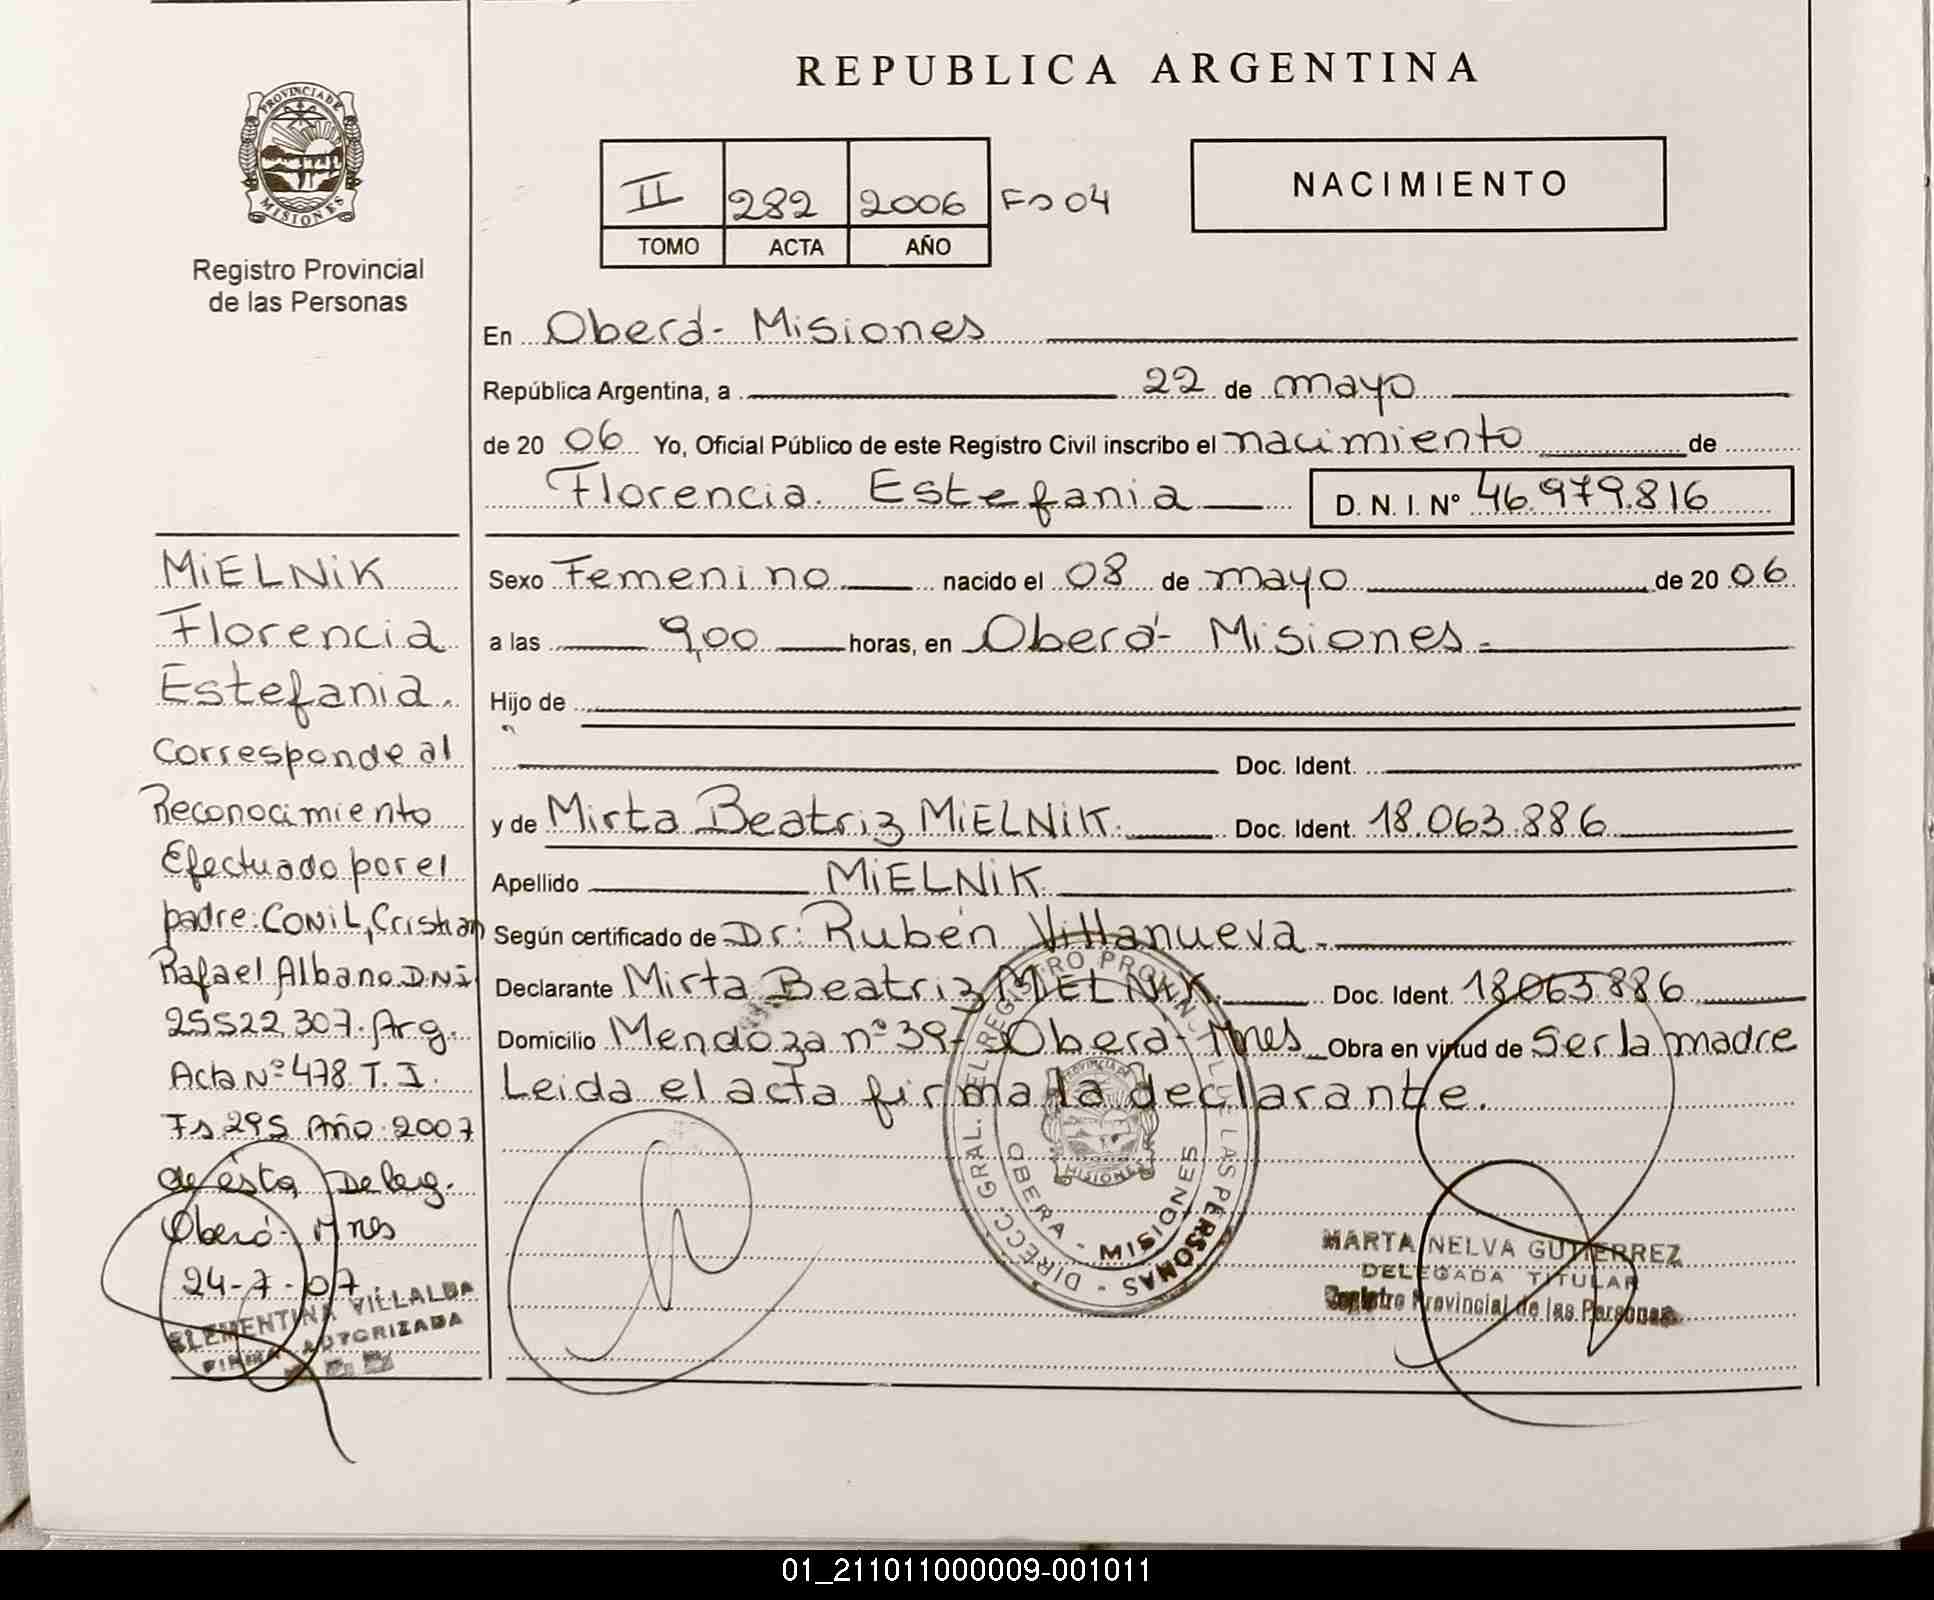 REPUBLICA ARGENTINA
PROVINCIA DE
MISIONES
Registro Provincial
de las Personas
II 282 2006 Fs 04
TOMO ACTA AÑO
NACIMIENTO
En Oberá - Misiones
República Argentina, a 22 de mayo
de 20 06 Yo, Oficial Público de este Registro Civil inscribo el nacimiento de
Florencia Estefania D. N. I. Nº 46.979.816
Sexo Femenino nacido el 08 de mayo de 20 06
a las 9,00 horas, en Oberá - Misiones.
Hijo de
Doc. Ident.
y de Mirta Beatriz MiELNiK. Doc. Ident. 18.063.886
Apellido MiELNiK.
Según certificado de Dr: Rubén Villanueva.
Declarante Mirta Beatriz MiELNiK. Doc. Ident. 18063.886
Domicilio Mendoza nº 39 - Oberá - Mnes Obra en virtud de Ser la madre
Leida el acta firma la declarante.
MiELNiK
Florencia
Estefania.
Corresponde al
Reconocimiento
Efectuado por el
padre: CONiL, Cristian
Rafael Albano DNI
25522.307. Arg.
Acta Nº 478. T. I.
Fs 295 Año 2007
de ésta Deleg.
Oberá - Mnes
24-7-07.
CLEMENTINA VILLALBA
FIRMA AUTORIZADA
DIRECC. GRAL. EL REGISTRO PROVINCIAL DE LAS PERSONAS
PROVINCIA DE
MISIONES
OBERA - MISIONES
MARTA NELVA GUTIERREZ
DELEGADA TITULAR
Registro Provincial de las Personas
01_211011000009-001011